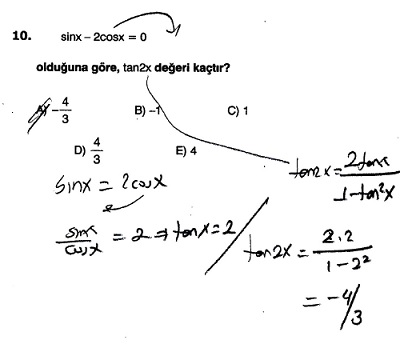 10. sinx – 2cosx = 0
olduğuna göre, tan2x değeri kaçtır?
A) –4/3 B) –1 C) 1
D) 4/3 E) 4
sinx = 2cosx
sinx/cosx = 2 ⇒ tanx = 2
tan2x = 2tanx/1-tan²x
tan2x = 2.2/1-2²
= -4/3